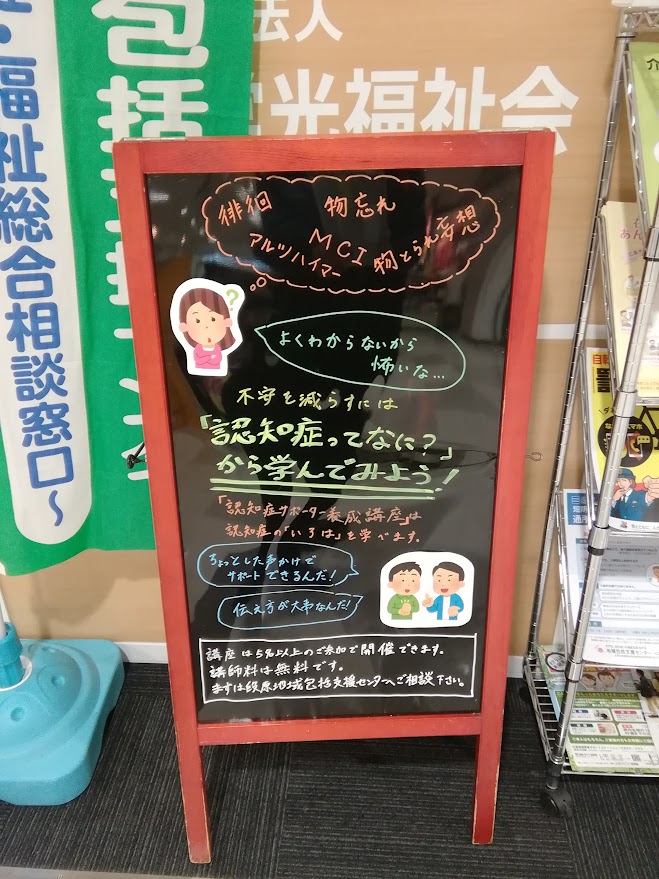 包括
福祉総合相談窓口～
法人
光福祉会
徘徊 物忘れ
アルツハイマー MCI 物とられ妄想
?
よくわからないから
怖いな…
不安を減らすには
「認知症ってなに?」
から学んでみよう!
「認知症サポーター養成講座」は
認知症の「いろは」を学べます。
ちょっとした声かけで
サポートできるんだ!
伝え方が大事なんだ!
講座は5名以上のご参加で開催できます。
講師料は無料です。
まずは段原地域包括支援センターへご相談下さい。